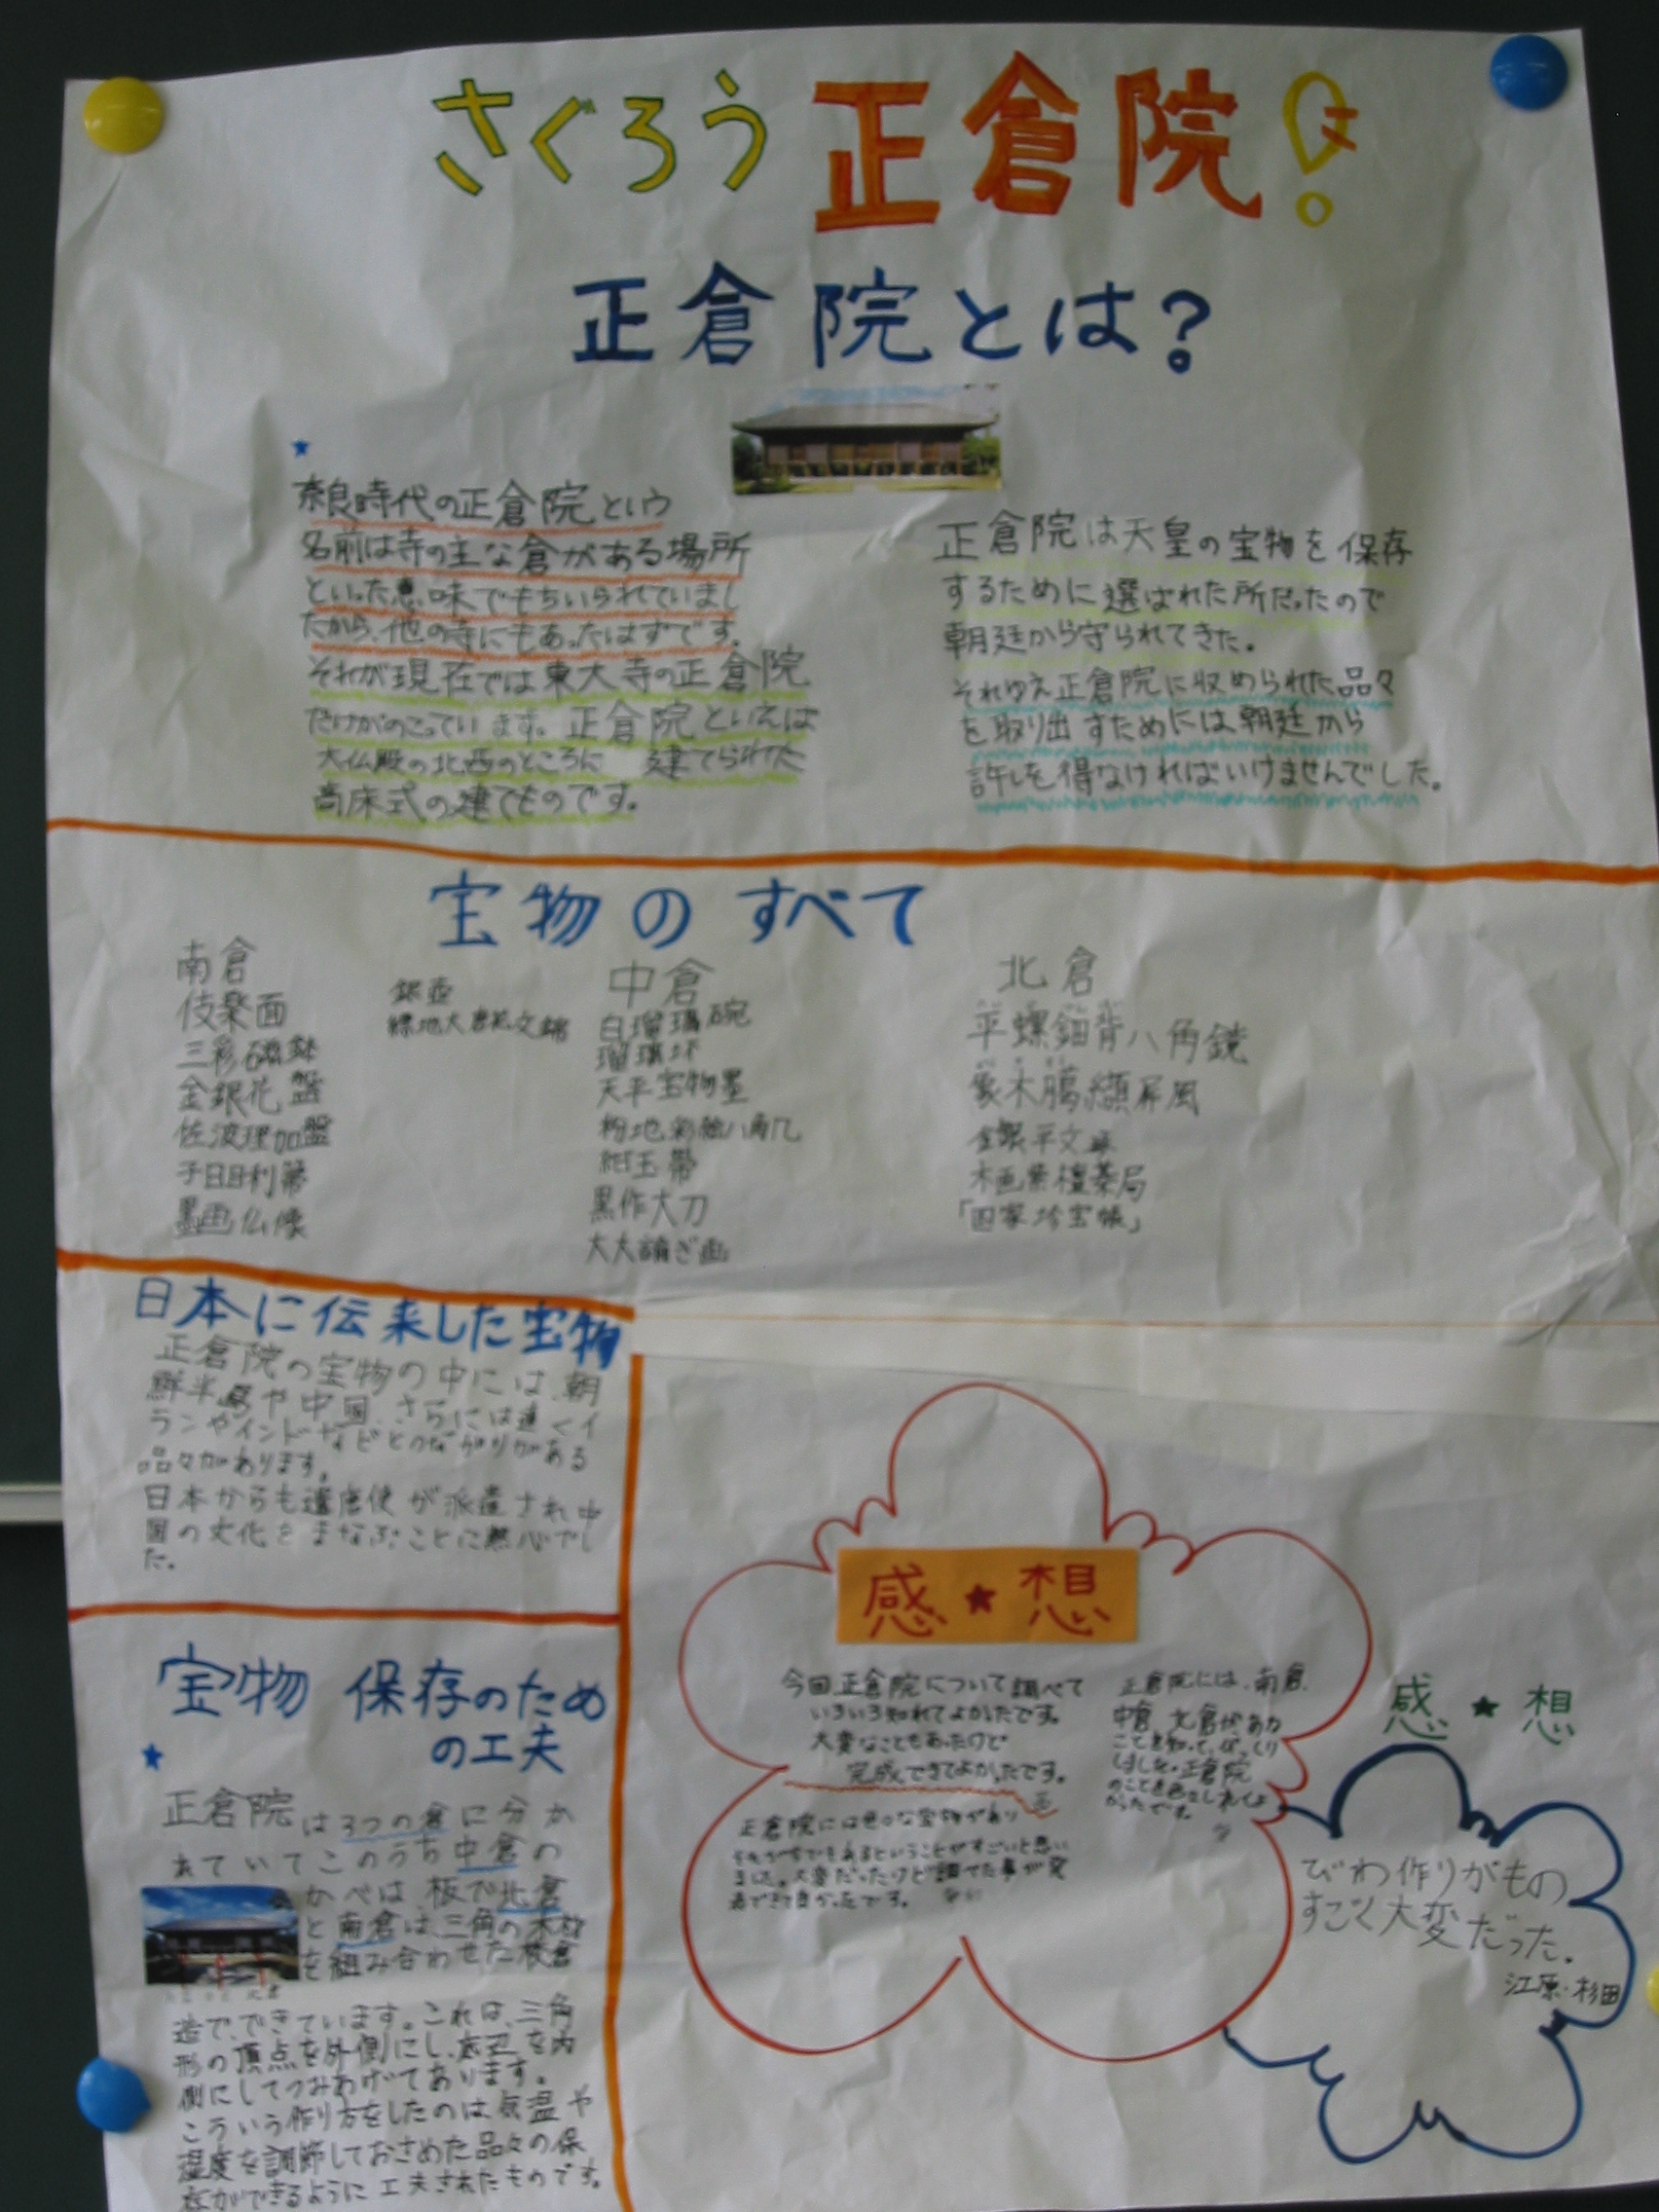 さぐろう正倉院!
正倉院とは?
奈良時代の正倉院という
名前は寺の主な倉がある場所
といった意味でもちいられていまし
たから、他の寺にもあったはずです。
それが現在では東大寺の正倉院
だけがのこっています。正倉院といえば
大仏殿の北西のところに 建てられた
高床式の建てものです。
正倉院は天皇の宝物を保存
するために選ばれた所だったので
朝廷から守られてきた。
それゆえ正倉院に収められた品々
を取り出すためには朝廷から
許しを得なければいけませんでした。
宝物のすべて
南倉
伎楽面
三彩磁鉢
金銀花盤
佐波理加盤
子日目利箒
墨画仏像
銀壺
縹地大唐花文錦
中倉
白瑠璃碗
瑠璃坏
天平宝物墨
粉地彩絵八角几
紺玉帯
黒作大刀
北倉
平螺鈿背八角鏡
象木臈纈屏風
金銀平文琴
木画紫檀棊局
「国家珍宝帳」
日本に伝来した宝物
正倉院の宝物の中には、朝
鮮半島や中国、さらには遠くイ
ランやインドなどとつながりがある
品々があります。
日本からも遣唐使が派遣され中
国の文化をまなぶことに熱心でし
た。
宝物 保存のため
の工夫
正倉院は3つの倉に分か
れていてこのうち中倉の
かべは、板で北倉
と南倉は、三角の木材
を組み合わせた校倉
造で、できています。これは、三角
形の頂点を外側にし、底辺を内
側にしてつみあげてあります。
こういう作り方をしたのは、気温や
湿度を調節しておさめた品々の保
存ができるように工夫されたものです。
感★想
今回、正倉院について調べて
いろいろ知れてよかったです。
大変なこともあったけど
完成できてよかったです。
正倉院には色々な宝物があり
それが今でもあるということがすごいと思い
ました。大変だったけど調べた事が発
表できて良かったです。
正倉院には、南倉、
中倉、北倉がある
ことを知って、びっくり
しました。正倉院
のことを色々しれてよ
かったです。
感★想
びわ作りがもの
すごく大変だった。
江原・杉田